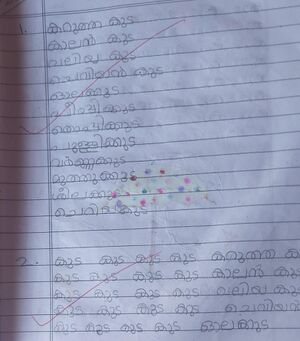 1. കറുത്ത കുട
കാലൻ കുട
വലിയ കുട
ചെറിയൻ കുട
ഓലക്കുട
ശീലക്കുട
തൊപ്പിക്കുട
പുള്ളിക്കുട
വർണ്ണക്കുട
മുത്തുക്കുട
ശീലക്കുട
ചെറിയ കുട
2. കുട കുട കുട കുട കറുത്ത
കുട കുട കുട കുട കാലൻ കുട
കുട കുട കുട കുട വലിയ കുട
കുട കുട കുട കുട
കുട കുട കുട കുട ഓലക്കുട